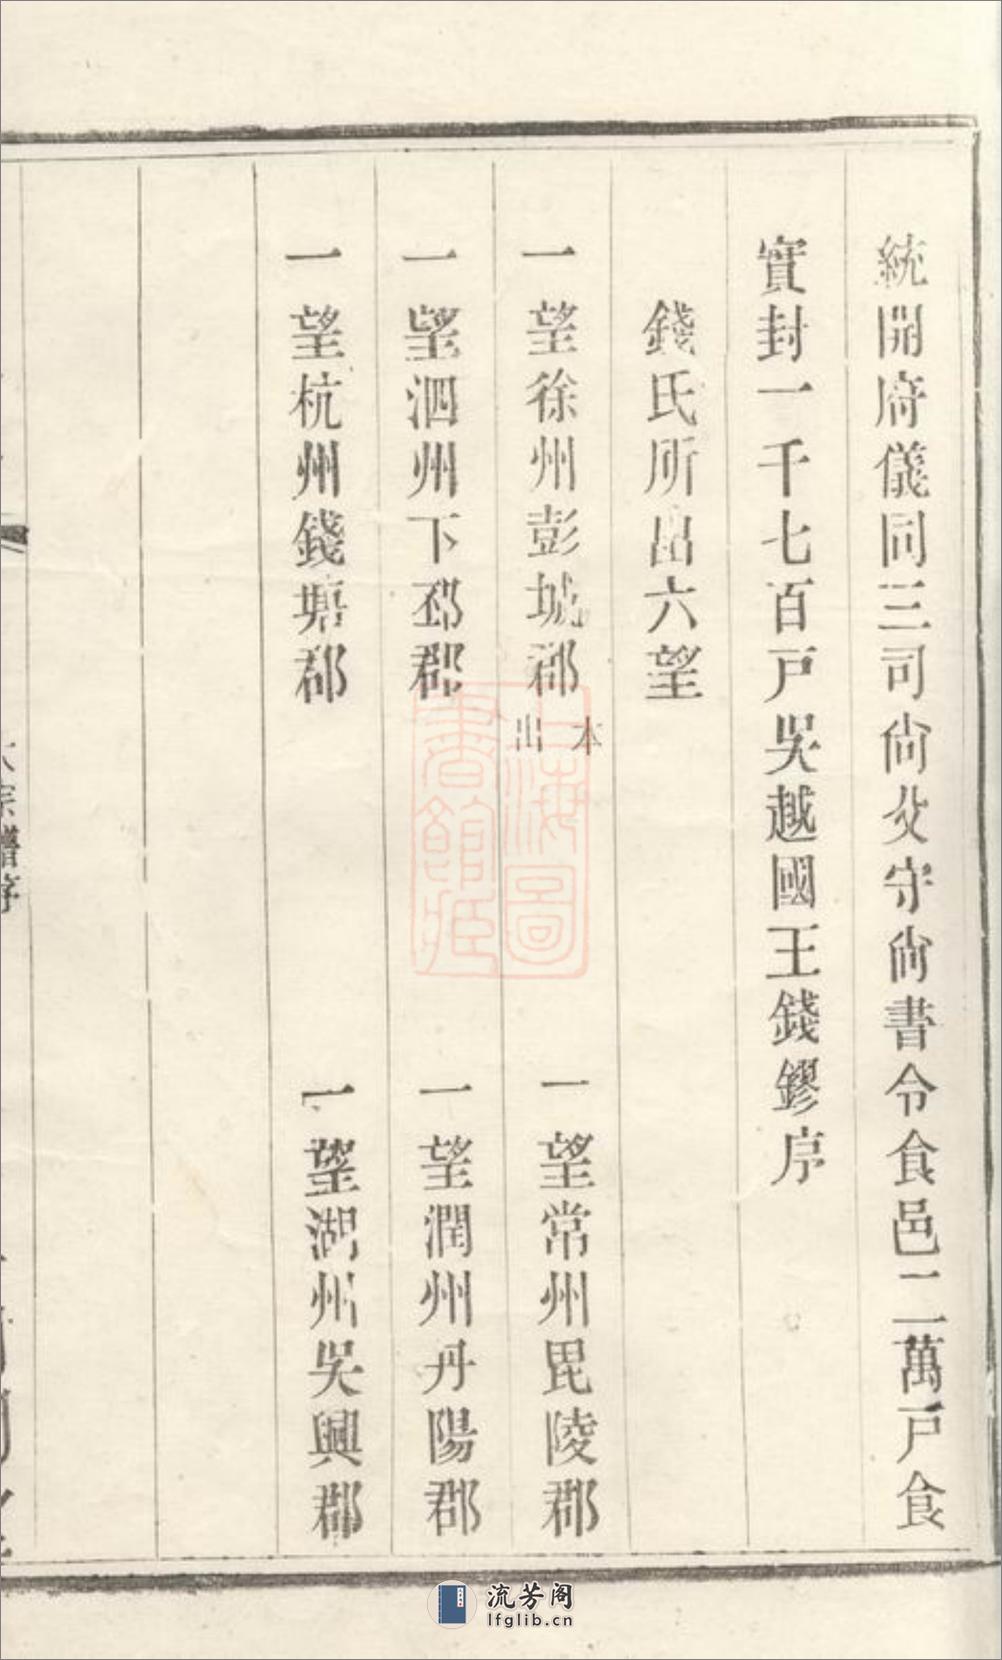 統開府儀同三司尚父守尚書令食邑二萬戸食
實封一千七百戸吳越國王錢鏐序
錢氏所出六望
一望徐州彭城郡本出　一望常州毘陵郡
一望泗州下邳郡　一望潤州丹陽郡
一望杭州錢塘郡　一望湖州吳興郡
大宗譜序
上海圖書館藏
流芳阁
lfglib.cn